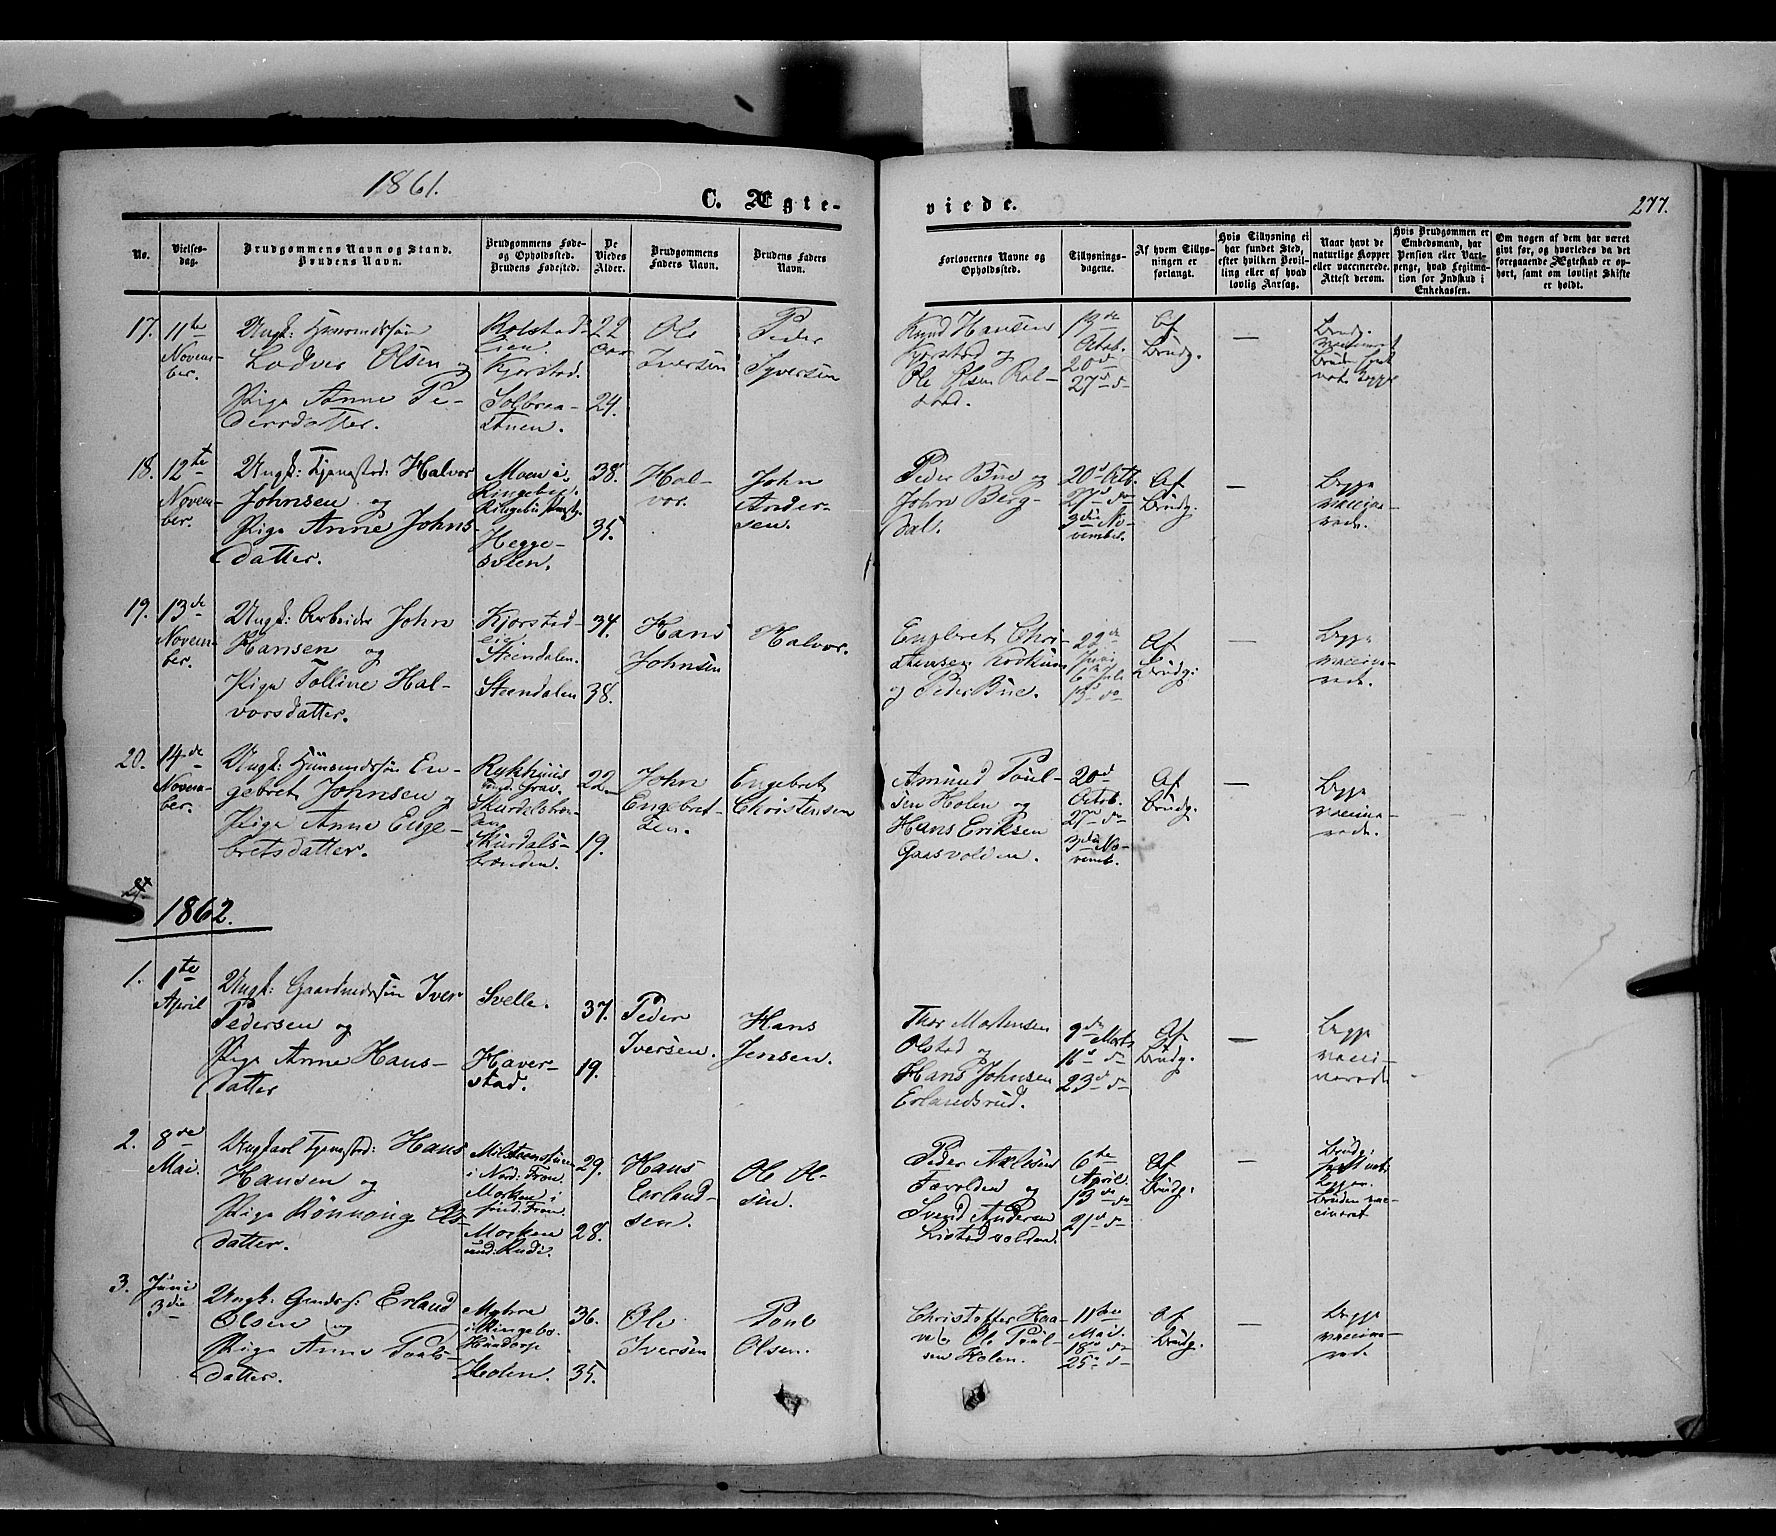 1861.
C. Ægte-
viede.
277.
No.
Vielses-
dag.
Brudgommens Navn og Stand.
Brudens Navn.
Brudgommens Føde-
og Opholdssted.
Brudens Fødested.
De
Viedes
Alder.
Brudgommens
Faders Navn.
Brudens Faders
Navn.
Forlovernes Navne og
Opholdssted.
Tillysnings-
dagene.
Af hvem Tillys-
ningen er
forlangt.
Hvis Tillysning ei
har fundet Sted,
efter hvilken Bevil-
ling eller af hvad
lovlig Aarsag.
Naar havt de
naturlige Kopper
eller vaccinerede.
Attest derom.
Hvis Brudgommen er
Embedsmand, har
Pension eller Vart-
penge, hvad Legitima-
tion for Indskud i
Enkekassen.
Om nogen af dem har været
gift før, og hvorledes da det
foregaaende Ægteskab er op-
hørt, samt om lovligt Skifte
er holdt.
17.
11te
Novem-
ber.
Ungk: Huusmandssøn
Lodver Olsen og
Pige Anne Pe-
dersdatter.
Rolstad-
eien.
Kjorstad.
Solbraa-
stuen.
22
24.
Ole
Iversen
Peder
Syversen
Knud Hansen
Kjorstad og
Ole Olsen Rol-
stad.
13de
Octob.
20de
27de do
Af
Brudg.
—
Brudg.
vaccineret
Bruden havt
nat. Kopper
18.
12te
Novem-
ber.
Ungk: Tjenested: Halvor
Johnsen og
Pige Anne Johns-
datter.
Moen i
Ringebu.
Hegge-
solen.
38.
35.
Hal-
vor.
John
Ander-
sen.
Peder Bue og
John Berg-
dal.
20d Octb.
27d do
3die No-
vember.
Af
Brudg.
—
Begge
vaccine-
rede.
19.
13de
Novem-
ber.
Ungk: Arbeider John
Hansen og
Pige Talline Hal-
vorsdatter.
Kjorstad-
eie
Steendalen.
Steendalen
34.
38.
Hans
Johnsen
Halvor.
Engebret Chri-
stensen
og Peder Bue.
Juni
6te Juli
13d do
Af
Brudg:
—
Begge
vaccine-
rede.
20.
14de
Novem-
ber.
Ungk: Huusmandssøn En-
gebret Johnsen og
Pige Anne Enge-
bretsdatter.
Rykhuus
und. Grav.
Skurdals-
branden.
22
19.
John
Engebret-
sen.
Engebret
Christensen
Amund Poul-
sen Holen og
Hans Eriksen
Gaasvolden.
20d
Octob.
27d do
3die No-
vemb.
Af
Brudg.
—
Begge
vaccine-
rede.
1862.
1.
1te
April
Ungk: Gaardmandssøn Iver
Pedersen og
Pige Anne Hans-
datter
Svelle.
Haver-
stad.
37.
19.
Peder
Iversen.
Hans
Jensen.
Thor Mortensen
Olstad og
Hans Johnsen
Erlandsrud.
9de Marts
16d do
23d do
Af
Brudg.
—
Begge
vacci-
nerede
2.
8de
Mai.
Ungkarl Tjenested: Hans
Hansen og
Pige Rønnoug Ols-
datter.
i Nord: Fron.
Morken i
Sønd. Fron.
Morken
und: Rudi.
29.
28.
Hans
Erland-
sen.
Ole Ol-
sen.
Peder Axelsen
Forolden og
Svend Andersen
Listadvolden.
6te
April.
13de do
21d do
Af
Brudg:
—
Brudg:
havt nat.
Kopper.
Bruden vac-
cineret
3.
Juni
3die
Ungk: Gmdss: Erland
Olsen og
Pige Anne Pouls-
datter.
i Ringebo.
Hundorp
Holen.
36.
35.
Ole
Iversen
Poul
Olsen.
Christoffer Haa-
ve og Ole Poul-
sen Holen.
11te
Mai.
18de do
25de do
Af
Brudg.
—
Begge
vaccine-
rede.